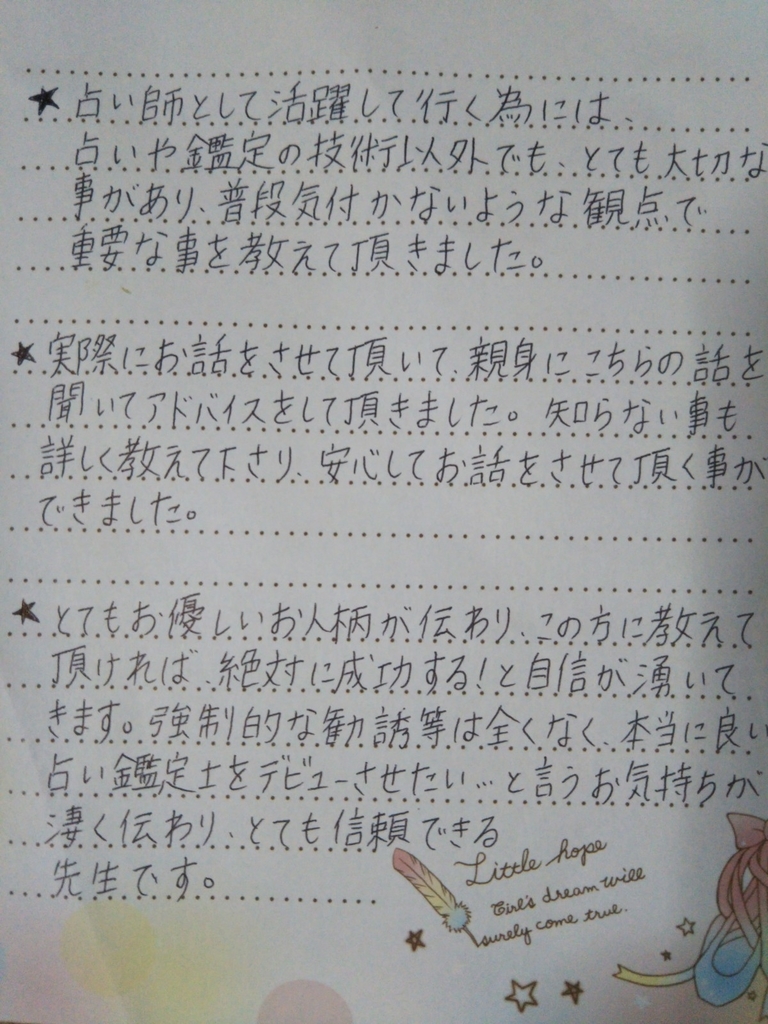 ★占い師として活躍して行く為には、
占いや鑑定の技術以外でも、とても大切な
事があり、普段気付かないような観点で
重要な事を教えて頂きました。
★実際にお話をさせて頂いて、親身にこちらの話を
聞いてアドバイスをして頂きました。知らない事も
詳しく教えて下さり、安心してお話をさせて頂く事が
できました。
★とてもお優しいお人柄が伝わり、この方に教えて
頂ければ、絶対に成功する!と自信が湧いて
きます。強制的な勧誘等は全くなく、本当に良い
占い鑑定士をデビューさせたい…と言うお気持ちが
凄く伝わり、とても信頼できる
先生です。
Little hope
Girl's dream will
surely come true.